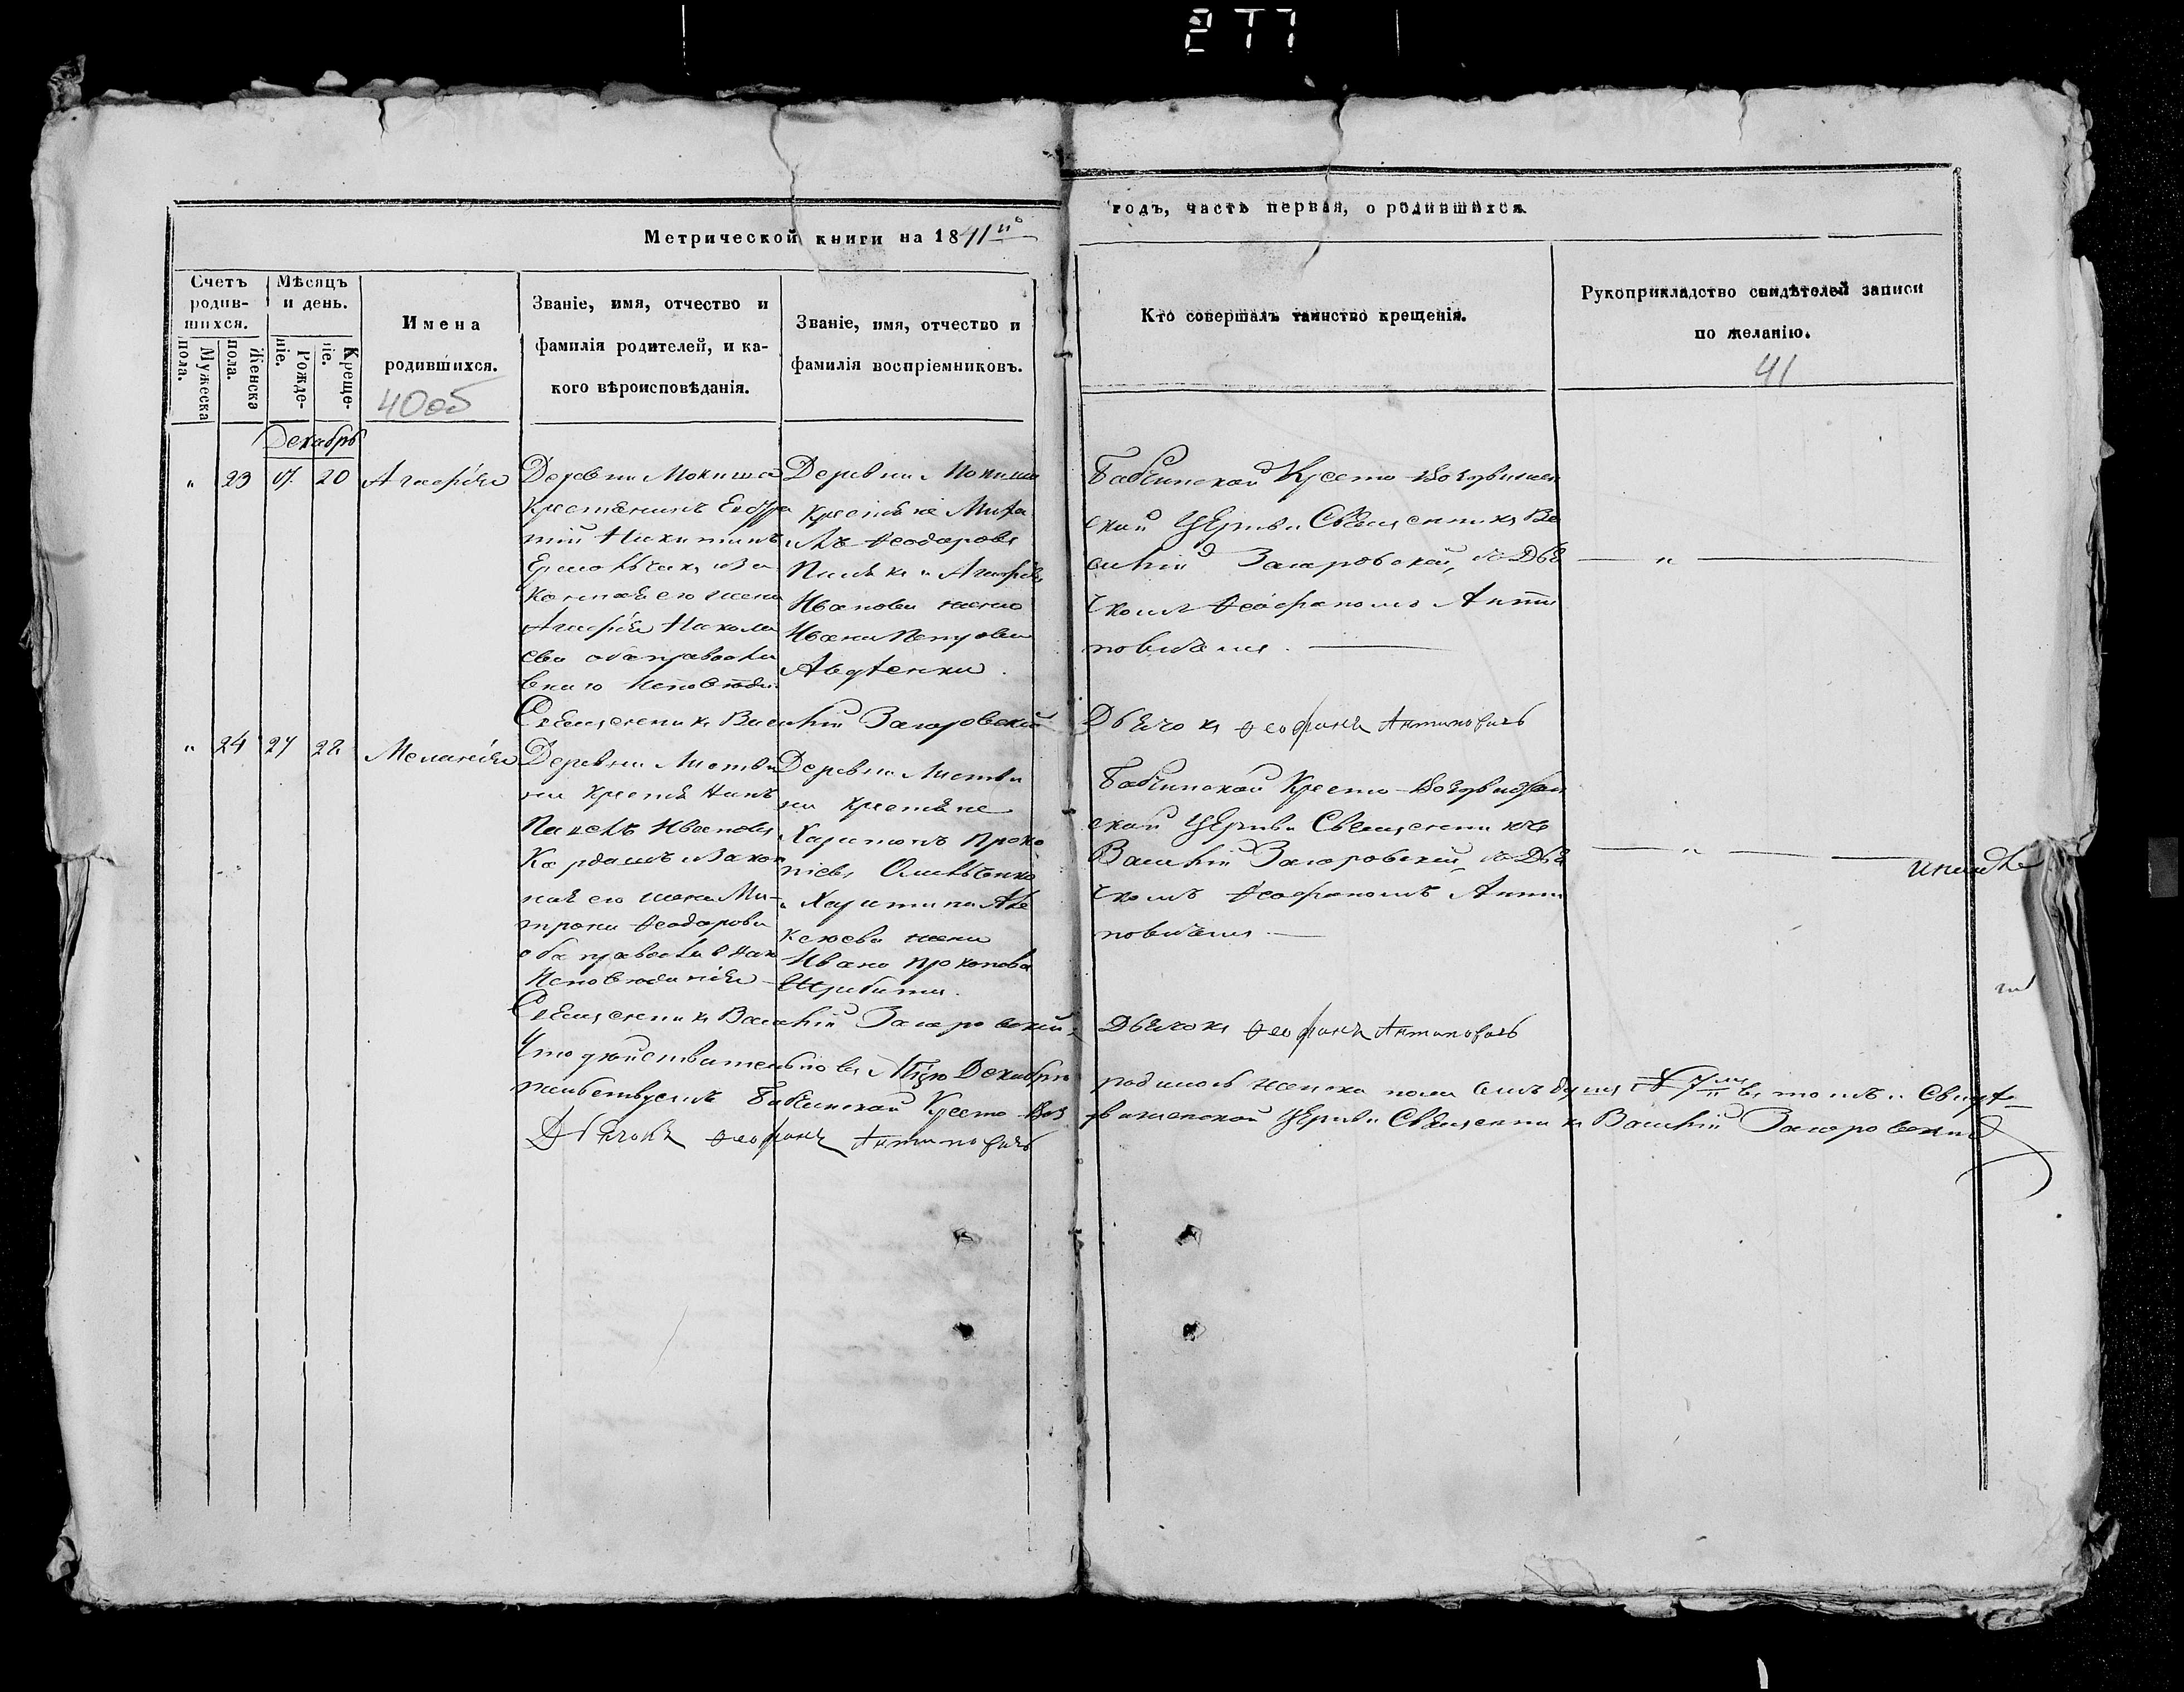 277
Метрической книги на 1841й
годъ, часть первая, о родившихся.
Счетъ родив-
шихся.
Мужеска пола.
Женска пола.
Мѣсяцъ и день.
Рожде-
ніе.
Креще-
ніе.
Имена
родившихся.
40об
Званіе, имя, отчество и
фамилія родителей, и ка-
кого вѣроисповѣданія.
Званіе, имя, отчество и
фамилія воспріемниковъ.
Кто совершалъ таинство крещенія.
Рукоприкладство свидѣтелей записи
по желанію.
41
Декабрь
" 23 20 Агафія
Деревни Мокиша
Крестянинъ
Никитинъ
и За
конная его жена
Агафія Никола
ева оба православ
Деревни Мокиша
Крестяне Миха
илъ Феодоровъ
и Агафія
Иванова жена
Ивана Петрова
Авдѣенка.
Бабчинской Кресто-Воздвижен
ской Церкви Священникъ Ва
силій Загоровской, съ Дья
комъ Феофаномъ Анти
повичемъ.
"
Священникъ Василій Загоровскій
Дьячокъ Феофанъ Антиповичъ
" 24 27 28 Меланія
Деревни Листви
на Крестянинъ
Павелъ Ивановъ
Кардашъ и Закон
ная его жена Ми-
трона Феодорова
оба православнаго
Исповѣданія
Деревни Листви
на Крестяне
Харитонъ Проко
піевъ
и Харитина Але
ксеева жена
Ивана Прокопова
Бабчинской Кресто-Воздвижен
ской Церкви Священникъ
Василій Загоровскій, съ Дья
комъ Феофаномъ Анти
повичемъ
"
Священникъ Василій Загоровскій
Дьячокъ Феофанъ Антиповичъ
Что дѣйствительно въ Мцѣ Декабрѣ родилось женска пола въ томъ и свидѣ-
тельствуемъ Бабчинской Кресто-Воздвиженской Церкви Священникъ Василій Загоровскій
Дьячокъ Феофанъ Антиповичъ